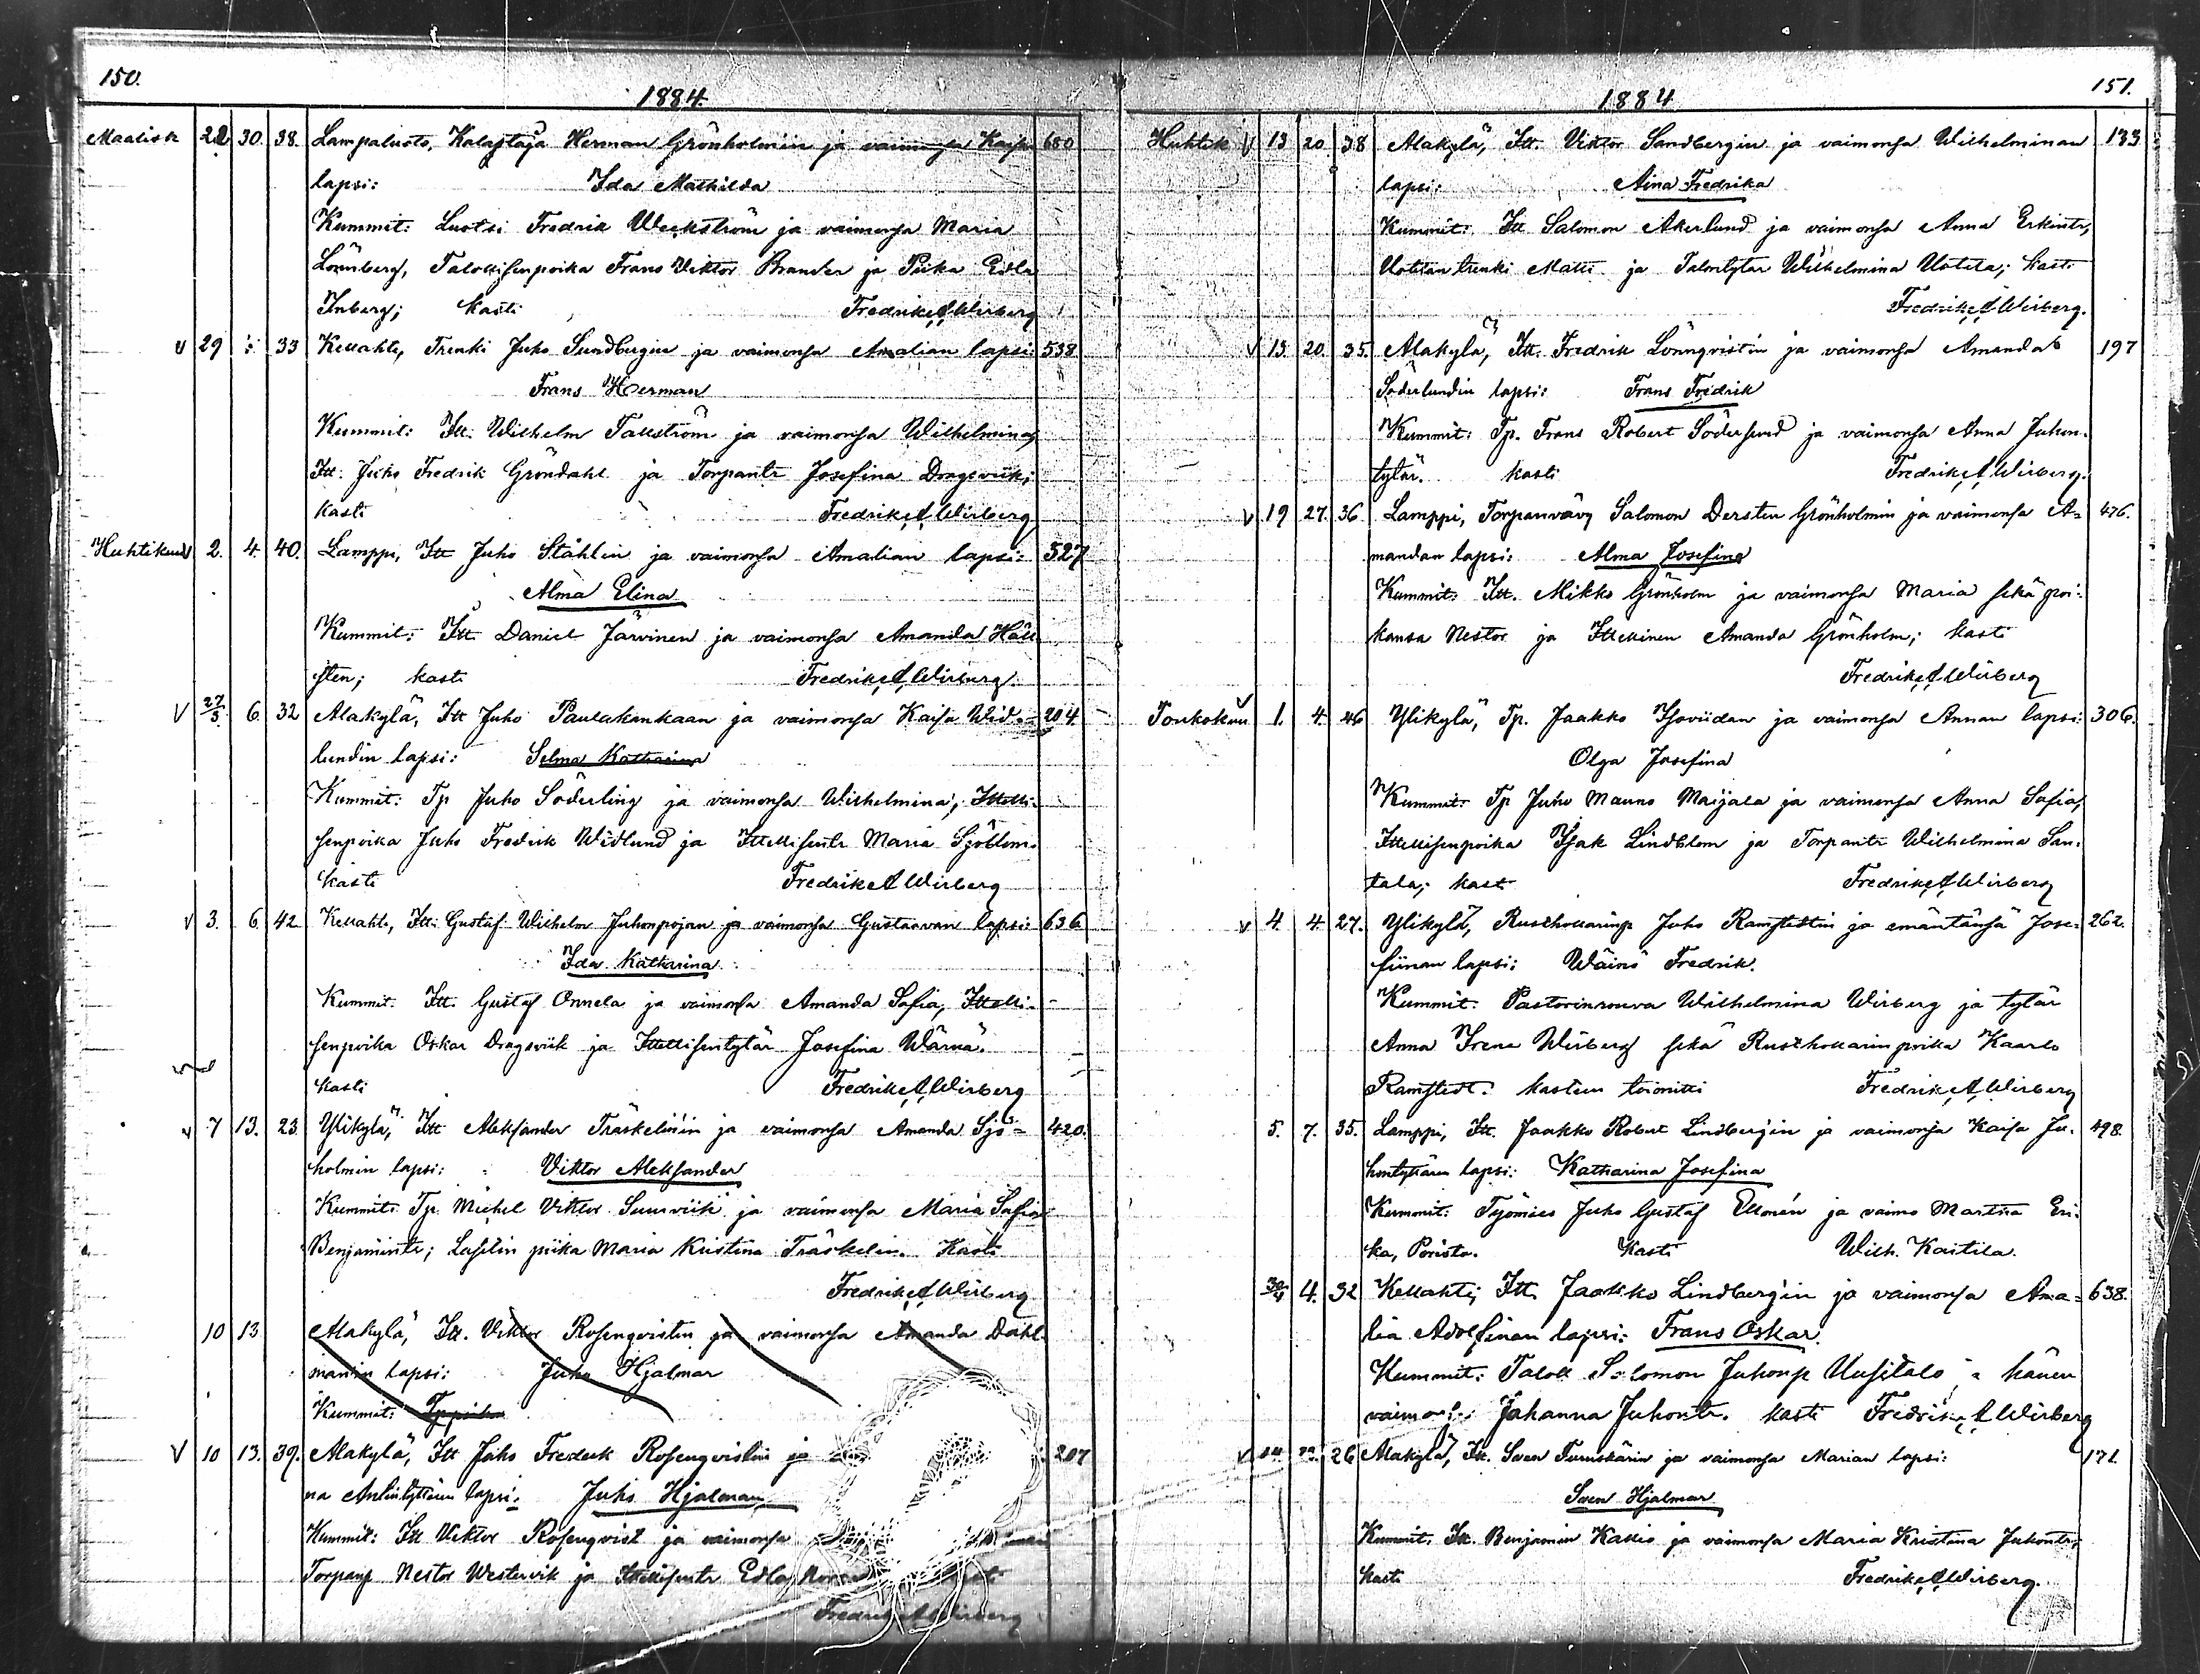 150.
1884.
Maalisk 22 30. 38. Lampaluoto, Kalastaja Herman Grönholmin ja vaimonsa Kaisa 680
lapsi: Ida Mathilda
Kummit: Luotsi Fredrik Weckström ja vaimonsa Maria
Lönnberg, Talollisenpoika Frans Viktor Brander ja Piika Edla
Inberg; kasti Fredrik A Wirberg
V 29 33 Kellahti, Trenki Juho Sundbergin ja vaimonsa Amalian lapsi 538
Frans Herman
Kummit: Itt. Wilhelm Tallström ja vaimonsa Wilhelmina,
Itt. Juho Fredrik Gröndahl ja Torpantr Josefina Dragsviik;
kasti Fredrik A Wirberg
Huhtikuu 2. 4. 40. Lamppi, Itt Juho Ståhlin ja vaimonsa Amalian lapsi: 527
Alma Elina
Kummit: Itt Daniel Järvinen ja vaimonsa Amanda Häll
sten; kasti Fredrik A Wirberg.
V 27/3. 6. 32 Alakylä, Itt Juho Paulakankaan ja vaimonsa Kaisa Wid- 204
lundin lapsi: Selma Katharina
Kummit: Tp Juho Söderling ja vaimonsa Wilhelmina; Ittelli-
senpoika Juho Fredrik Widlund ja Ittellisentr Maria Sjöblom.
kasti Fredrik A Wirberg
V 3. 6. 42 Kellahti, Itt: Gustaf Wilhelm Juhonpojan ja vaimonsa Gustaavan lapsi: 636
Ida Katharina
Kummit. Itt. Gustaf Onnela ja vaimonsa Amanda Sofia, Ittelli-
senpoika Oskar Dragsviik ja Ittellisentytär Josefina Wärnä.
kasti Fredrik A Wirberg
V 7 13. 23 Ylikylä, Itt Aleksander Träskelinin ja vaimonsa Amanda Sjö- 420.
holmin lapsi: Viktor Aleksander
Kummit: Tp. Michel Viktor Suursviik ja vaimonsa Maria Sofia
Benjamintr; Lasilin piika Maria Kristina Träskelin. Kasti
Fredrik A Wirberg
10 13 Alakylä, Itt. Viktor Rosenqvistin ja vaimonsa Amanda Dahl-
manin lapsi: Juho Hjalmar
Kummit:
V 10 13. 39. Alakylä, Itt Juho Fredrik Rosenqvistin ja 207
na Antintyttären lapsi: Juho Hjalmar
Kummit: Itt Viktor Rosenqvist ja vaimonsa
Torpanp Nestor Westervik ja Ittellisentr Edla
Fredrik A Wirberg
151.
1884
Huhtik V 13 20. 38 Alakylä, Itt. Viktor Sandbergin ja vaimonsa Wilhelminan 133
lapsi: Aina Fredrika
Kummit: Itt Salomon Åkerlund ja vaimonsa Anna Erkintr,
Uotilan trenki Matti ja Talontytär Wilhelmina Uotila; kasti
Fredrik A Wirberg.
V 13. 20 35. Alakylä, Itt. Fredrik Lönnqvistin ja vaimonsa Amanda 197
Söderlundin lapsi: Frans Fredrik
Kummit: Tp. Frans Robert Söderlund ja vaimonsa Anna Juhon-
tytär. kasti Fredrik A Wirberg.
V 19 27. 36. Lamppi, Torpanvävy Salomon Dersten Grönholmin ja vaimonsa A- 476.
mandan lapsi: Alma Josefina
Kummit: Itt. Mikko Grönholm ja vaimonsa Maria sekä poi-
kansa Nestor ja Ittellinen Amanda Grönholm; kasti
Fredrik A Wirberg
Toukokuu 1. 4. 46 Ylikylä, Tp. Jaakko Isoviidan ja vaimonsa Annan lapsi: 306.
Olga Josefina
Kummit: Tp Juho Mauno Maijala ja vaimonsa Anna Sofia,
Ittellisenpoika Isak Lindblom ja Torpantr Wilhelmina San-
tala; kasti Fredrik A Wirberg
V 4. 4. 27. Ylikylä, Rusthollarinp Juho Ramstedtin ja emäntänsä Jose- 262.
fiinan lapsi: Wäinö Fredrik.
Kummit: Pastorinrouva Wilhelmina Wirberg ja tytär
Anna Irene Wirberg sekä Rusthollarinpoika Kaarlo
Ramstedt. kasteen toimitti Fredrik A Wirberg
5. 7. 35. Lamppi, Itt. Jaakko Robert Lindbergin ja vaimonsa Kaisa Ju- 498.
hontyttären lapsi: Katharina Josefina
Kummit: Työmies Juho Gustaf Ellonén ja vaimo Martta Eri-
ka, Porista. Kasti Wilh. Kaitila.
30/4 4. 32 Kellahti, Itt. Jaakko Lindbergin ja vaimonsa Ama- 638.
lia Adolfinan lapsi: Frans Oskar.
Kummit: Taloll Salomon Juhonp Uusitalo ja hänen
vaimonsa Johanna Juhontr. kasti Fredrik A Wirberg
V 26 Alakylä, Itt. Sven Furuskärin ja vaimonsa Marian lapsi: 171.
Sven Hjalmar
Kummit. Itt. Benjamin Kallio ja vaimonsa Maria Kristina Juhontr;
kasti Fredrik A Wirberg.